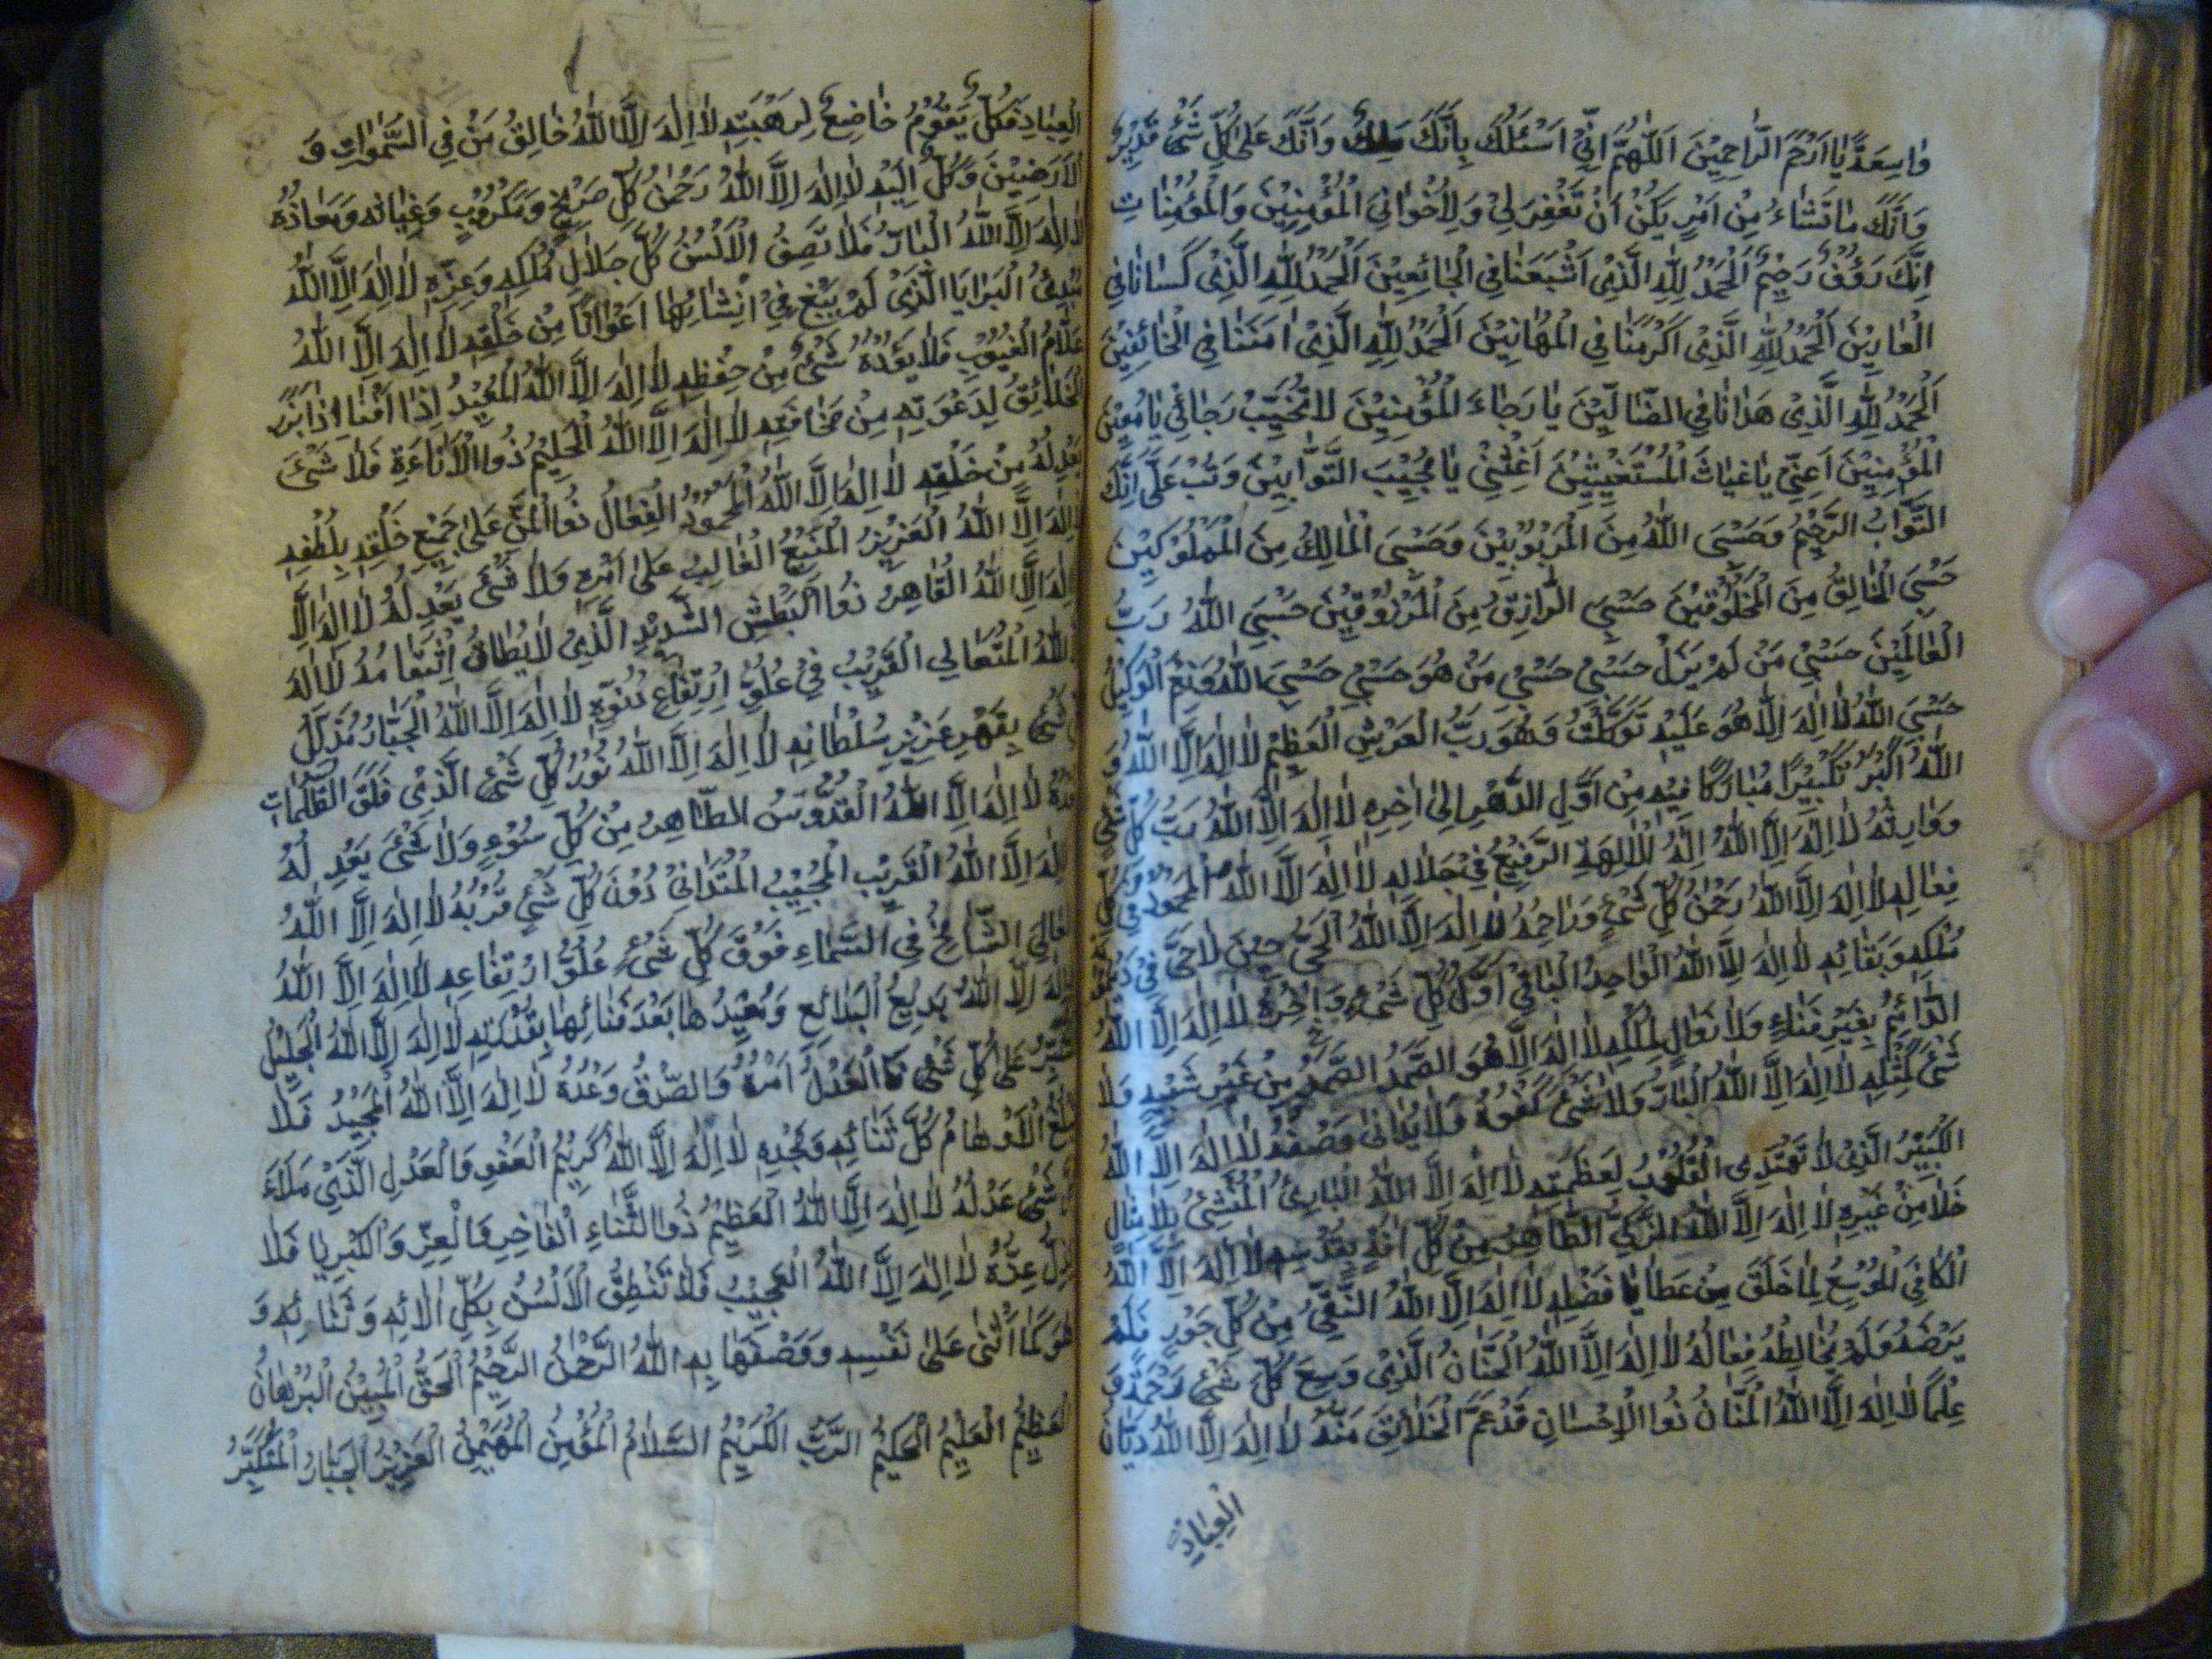 وٰاسِعَةً يٰا اَرْحَمَ الرّٰاحِمِيْنَ اَللّٰهُمَّ اِنِّيْ اَسْئَلُكَ بِاَنَّكَ مَلِكٌ وَاَنَّكَ عَلىٰ كُلِّ شَيْءٍ قَدِيْرٌ
وَاَنَّكَ مٰا تَشٰاءُ مِنْ اَمْرٍ يَكُنْ اَنْ تَغْفِرَ لِيْ وَلِاِخْوٰانِيَ الْمُؤْمِنِيْنَ وَالْمُؤْمِنٰاتِ
اِنَّكَ رَؤُفٌ رَحِيْمٌ اَلْحَمْدُ لِلّٰهِ الَّذِيْ اَشْبَعَنٰا فِي الْجٰائِعِيْنَ اَلْحَمْدُ لِلّٰهِ الَّذِيْ كَسٰانٰا فِي
الْعٰارِيْنَ اَلْحَمْدُ لِلّٰهِ الَّذِيْ اَكْرَمَنٰا فِي الْمُهٰانِيْنَ اَلْحَمْدُ لِلّٰهِ الَّذِيْ اٰمَنَنٰا فِي الْخٰائِفِيْنَ
اَلْحَمْدُ لِلّٰهِ الَّذِيْ هَدٰانٰا فِي الضّٰالِّيْنَ يٰا رَجٰاءَ الْمُؤْمِنِيْنَ لاٰ تُخَيِّبْ رَجٰائِيْ يٰا مُعِيْنَ
الْمُؤْمِنِيْنَ اَعِنِّيْ يٰا غِيٰاثَ الْمُسْتَغِيْثِيْنَ اَغِثْنِيْ يٰا مُجِيْبَ التَّوّٰابِيْنَ وَتُبْ عَلَيَّ اِنَّكَ
التَّوّٰابُ الرَّحِيْمُ وَحَسْبِيَ اللّٰهُ مِنَ الْمَرْبُوْبِيْنَ وَحَسْبِيَ الْمٰالِكُ مِنَ الْمَمْلُوْكِيْنَ
حَسْبِيَ الْخٰالِقُ مِنَ الْمَخْلُوْقِيْنَ حَسْبِيَ الرّٰازِقُ مِنَ الْمَرْزُوْقِيْنَ حَسْبِيَ اللّٰهُ رَبُّ
الْعٰالَمِيْنَ حَسْبِيْ مَنْ لَمْ يَزَلْ حَسْبِيْ حَسْبِيْ مَنْ هُوَ حَسْبِيْ حَسْبِيَ اللّٰهُ وَنِعْمَ الْوَكِيْلُ
حَسْبِيَ اللّٰهُ لاٰ اِلٰهَ اِلاّٰ هُوَ عَلَيْهِ تَوَكَّلْتُ وَهُوَ رَبُّ الْعَرْشِ الْعَظِيْمِ لاٰ اِلٰهَ اِلاَّ اللّٰهُ وَ
اللّٰهُ اَكْبَرُ تَكْبِيْرًا مُبٰارَكًا فِيْهِ مِنْ اَوَّلِ الدَّهْرِ اِلىٰ اٰخِرِهِ لاٰ اِلٰهَ اِلاَّ اللّٰهُ رَبُّ كُلِّ شَيْءٍ
وَوٰارِثُهُ لاٰ اِلٰهَ اِلاَّ اللّٰهُ اِلٰهُ الْاٰلِهَةِ الرَّفِيْعُ فِيْ جَلاٰلِهِ لاٰ اِلٰهَ اِلاَّ اللّٰهُ الْمَحْمُوْدُ فِيْ كُلِّ
فِعٰالِهِ لاٰ اِلٰهَ اِلاَّ اللّٰهُ رَحْمٰنُ كُلِّ شَيْءٍ وَرٰاحِمُهُ لاٰ اِلٰهَ اِلاَّ اللّٰهُ الْحَيُّ حِيْنَ لاٰ حَيَّ فِيْ دَيْمُوْمَةِ
مُلْكِهِ وَبَقٰائِهِ لاٰ اِلٰهَ اِلاَّ اللّٰهُ الْوٰاحِدُ الْبٰاقِيْ اَوَّلُ كُلِّ شَيْءٍ وَاٰخِرُهُ لاٰ اِلٰهَ اِلاَّ اللّٰهُ
الدّٰائِمُ بِغَيْرِ فَنٰاءٍ وَلاٰ زَوٰالٍ لِمُلْكِهِ لاٰ اِلٰهَ اِلاّٰ هُوَ الصَّمَدُ الصَّمَدُ مِنْ غَيْرِ شَبِيْهٍ وَلاٰ
شَيْءَ كَمِثْلِهِ لاٰ اِلٰهَ اِلاَّ اللّٰهُ الْبٰارُّ وَلاٰ شَيْءَ كُفْوُهُ وَلاٰ يُدٰانىٰ وَصْفُهُ لاٰ اِلٰهَ اِلاَّ اللّٰهُ
الْكَبِيْرُ الَّذِيْ لاٰ تَهْتَدِى الْقُلُوْبُ لِعَظَمَتِهِ لاٰ اِلٰهَ اِلاَّ اللّٰهُ الْبٰارِئُ الْمُنْشِئُ بِلاٰ مِثٰالٍ
خَلاٰ مِنْ غَيْرِهِ لاٰ اِلٰهَ اِلاَّ اللّٰهُ الزَّكِيُّ الطّٰاهِرُ مِنْ كُلِّ اٰفَةٍ بِقُدْسِهِ لاٰ اِلٰهَ اِلاَّ اللّٰهُ
الْكٰافِي الْمُوْسِعُ لِمٰا خَلَقَ مِنْ عَطٰايٰا فَضْلِهِ لاٰ اِلٰهَ اِلاَّ اللّٰهُ النَّقِيُّ مِنْ كُلِّ جَوْرٍ فَلَمْ
يَرْضَهُ وَلَمْ يُخٰالِطْهُ فِعٰالُهُ لاٰ اِلٰهَ اِلاَّ اللّٰهُ الْحَنّٰانُ الَّذِيْ وَسِعَ كُلَّ شَيْءٍ رَحْمَةً وَ
عِلْمًا لاٰ اِلٰهَ اِلاَّ اللّٰهُ الْمَنّٰانُ ذُو الْاِحْسٰانِ قَدْ عَمَّ الْخَلاٰئِقَ مَنُّهُ لاٰ اِلٰهَ اِلاَّ اللّٰهُ دَيّٰانُ
الْعِبٰادِ
الْعِبٰادِ فَكُلٌّ يَقُوْمُ خٰاضِعٌ لِرَهْبَتِهِ لاٰ اِلٰهَ اِلاَّ اللّٰهُ خٰالِقُ مَنْ فِي السَّمٰوٰاتِ وَ
الْاَرَضِيْنَ وَكُلٌّ اِلَيْهِ لاٰ اِلٰهَ اِلاَّ اللّٰهُ رَحْمٰنُ كُلِّ صَرِيْخٍ وَمَكْرُوْبٍ وَغِيٰاثُهُ وَمَعٰاذُهُ
لاٰ اِلٰهَ اِلاَّ اللّٰهُ الْبٰارُّ فَلاٰ تَصِفُ الْاَلْسُنُ كُلَّ جَلاٰلِ مُلْكِهِ وَعِزِّهِ لاٰ اِلٰهَ اِلاَّ اللّٰهُ
مُبْدِئُ الْبَرٰايَا الَّذِيْ لَمْ يَبْغِ فِيْ اِنْشٰائِهٰا اَعْوٰانًا مِنْ خَلْقِهِ لاٰ اِلٰهَ اِلاَّ اللّٰهُ
عَلاّٰمُ الْغُيُوْبِ فَلاٰ يَؤُدُهُ شَيْءٌ مِنْ حِفْظِهِ لاٰ اِلٰهَ اِلاَّ اللّٰهُ الْمُعِيْدُ اِذٰا اَفْنٰا اِذٰا بَرَزَ
الْخَلاٰئِقُ لِدَعْوَتِهِ مِنْ مَخٰافَتِهِ لاٰ اِلٰهَ اِلاَّ اللّٰهُ الْحَلِيْمُ ذُو الْاَنٰاءَةِ فَلاٰ شَيْءَ
يَعْدِلُهُ مِنْ خَلْقِهِ لاٰ اِلٰهَ اِلاَّ اللّٰهُ الْمَحْمُوْدُ الْفِعٰالُ ذُو الْمَنِّ عَلىٰ جَمِيْعِ خَلْقِهِ بِلُطْفِهِ
لاٰ اِلٰهَ اِلاَّ اللّٰهُ الْعَزِيْزُ الْمَنِيْعُ الْغٰالِبُ عَلىٰ اَمْرِهِ وَلاٰ شَيْءَ يَعْدِلُهُ لاٰ اِلٰهَ اِلاَّ
اِلٰهَ اِلاَّ اللّٰهُ الْقٰاهِرُ ذُو الْبَطْشِ الشَّدِيْدِ الَّذِيْ لاٰ يُطٰاقُ انْتِقٰامُهُ لاٰ اِلٰهَ
اللّٰهُ الْمُتَعٰالِي الْقَرِيْبُ فِيْ عُلُوِّ ارْتِفٰاعِ دُنُوِّهِ لاٰ اِلٰهَ اِلاَّ اللّٰهُ الْجَبّٰارُ مُذَلِّلُ
كُلِّ شَيْءٍ بِقَهْرِ عَزِيْزِ سُلْطٰانِهِ لاٰ اِلٰهَ اِلاَّ اللّٰهُ نُوْرُ كُلِّ شَيْءٍ الَّذِيْ فَلَقَ الظُّلُمٰاتِ
نُوْرُهُ لاٰ اِلٰهَ اِلاَّ اللّٰهُ الْقُدُّوْسُ الطّٰاهِرُ مِنْ كُلِّ سُوْءٍ وَلاٰ شَيْءَ يَعْدِلُهُ
لاٰ اِلٰهَ اِلاَّ اللّٰهُ الْقَرِيْبُ الْمُجِيْبُ الْمُتَدٰانِيْ دُوْنَ كُلِّ شَيْءٍ قُرْبُهُ لاٰ اِلٰهَ اِلاَّ اللّٰهُ
الْعٰالِي الشّٰامِخُ فِي السَّمٰاءِ فَوْقَ كُلِّ شَيْءٍ عُلُوُّ ارْتِفٰاعِهِ لاٰ اِلٰهَ اِلاَّ اللّٰهُ
اِلٰهَ اِلاَّ اللّٰهُ بَدِيْعُ الْبَدٰائِعِ وَمُعِيْدُهٰا بَعْدَ فَنٰائِهٰا بِقُدْرَتِهِ لاٰ اِلٰهَ اِلاَّ اللّٰهُ الْجَلِيْلُ
الْمُتَكَبِّرُ عَلىٰ كُلِّ شَيْءٍ فَالْعَدْلُ اَمْرُهُ وَالصِّدْقُ وَعْدُهُ لاٰ اِلٰهَ اِلاَّ اللّٰهُ الْمَجِيْدُ فَلاٰ
تَبْلُغُ الْاَوْهٰامُ كُلَّ ثَنٰائِهِ وَمَجْدِهِ لاٰ اِلٰهَ اِلاَّ اللّٰهُ كَرِيْمُ الْعَفْوِ وَالْعَدْلِ الَّذِيْ مَلَاَ
كُلَّ شَيْءٍ عَدْلُهُ لاٰ اِلٰهَ اِلاَّ اللّٰهُ الْعَظِيْمُ ذُو الثَّنٰاءِ الْفٰاخِرِ وَالْعِزِّ وَالْكِبْرِيٰا فَلاٰ
يَذِلُّ عِزُّهُ لاٰ اِلٰهَ اِلاَّ اللّٰهُ الْعَجِيْبُ فَلاٰ تَنْطِقُ الْاَلْسُنُ بِكُلِّ اٰلاٰئِهِ وَثَنٰائِهِ وَ
هُوَ كَمٰا اَثْنىٰ عَلىٰ نَفْسِهِ وَوَصَفَهٰا بِهِ اللّٰهُ الرَّحْمٰنُ الرَّحِيْمُ الْحَقُّ الْمُبِيْنُ الْبُرْهٰانُ
الْعَظِيْمُ الْعَلِيْمُ الْحَكِيْمُ الرَّبُّ الْكَرِيْمُ السَّلاٰمُ الْمُؤْمِنُ الْمُهَيْمِنُ الْعَزِيْزُ الْجَبّٰارُ الْمُتَكَبِّرُ